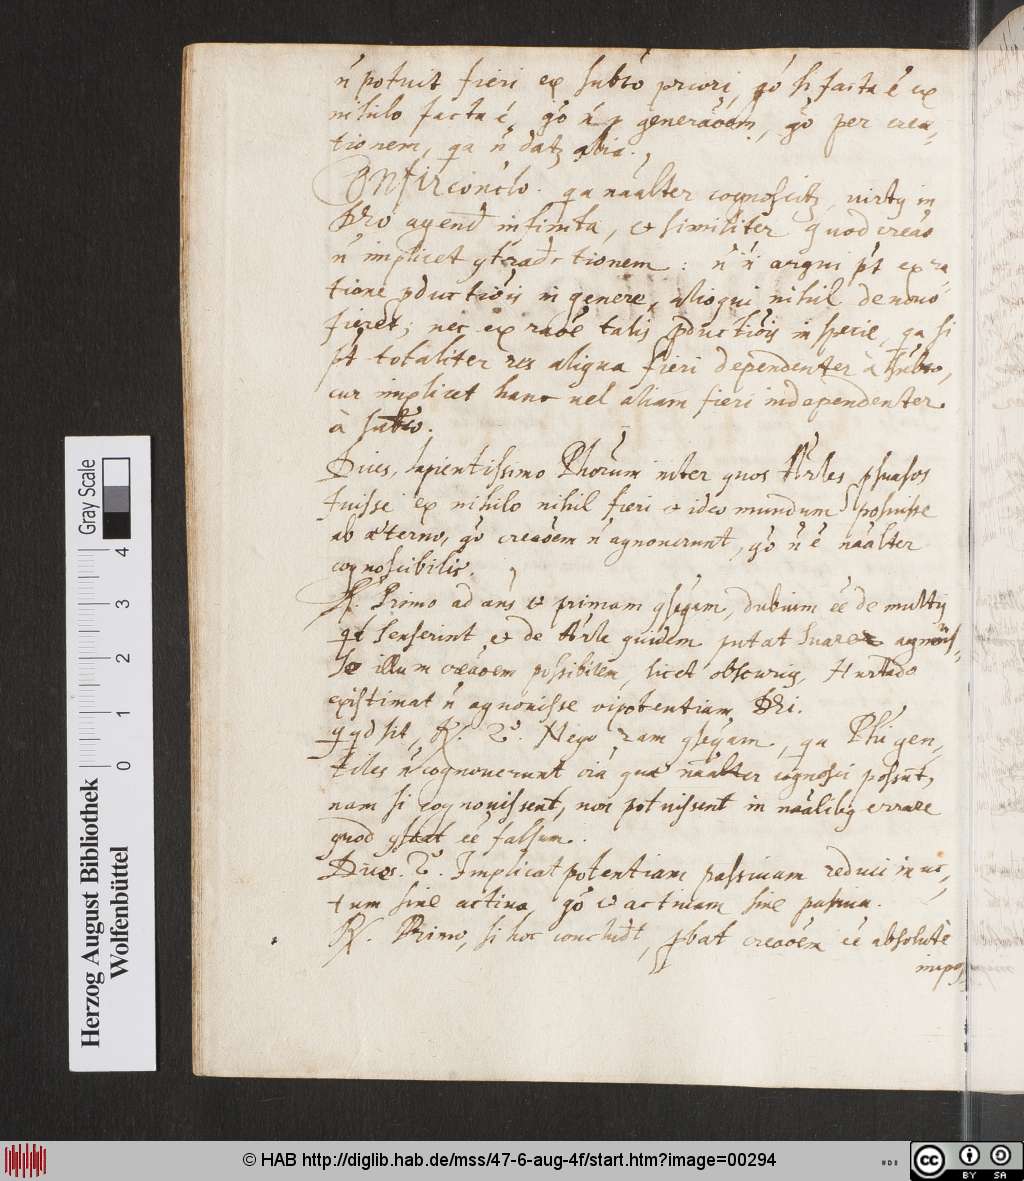 ń potuit fieri ex subto priori, gó si facta é ex
nihilo facta é, gó ń p generaoem, gó per crea-
tionem, qa ń dat alia.
Confir conclo. qa naálter cognoscit, virty in
Deo agend infinita, et similiter quod creao
ń implicet gtradictionem: ń ń argui pt ex ra-
tione pductiois in genere, alioqui nihil de nouo
fieret; nec ex raoe talis pductiois in specie, qa si
pt totaliter res aliqua fieri dependenter à subto,
cur implicet hanc uel aliam fieri independenter
à subto.
Dices, sapientissimo Phorum inter quos Arles psuasos
fuisse ex nihilo nihil fieri et ideo mundum posuisse
ab æterno, gó creaoem ń agnouerunt, gó ń é naálter
cognoscibilis.
R. Primo ad ans et primam gsegam, dubium eé de multy
qd senserint et de Arle quidem putat Suarez agnouis-
se illum creaoem possibilem, licet obscurig, Hurtado
existimat ń agnouisse oipotentiam Dei.
qqd sit, R. 2°. Nego ram gsegam, qa Phi gen-
tiles ń cognouerunt oia quæ naálter cognosci possunt,
nam si cognouissent, non potuissent in naálibg errare
quod gstat eé falsum.
Dices. 2°. Implicat potentiam passiuam reduci in ac-
tum sine actiua gó et actiuam sine passiua.
R. Primo, si hoc concludit, pbat creaoem eé absolutè
impos-
Herzog August Bibliothek
Wolfenbüttel
Gray Scale
0 1 2 3 4
© HAB http://diglib.hab.de/mss/47-6-aug-4f/start.htm?image=00294
cc BY SA